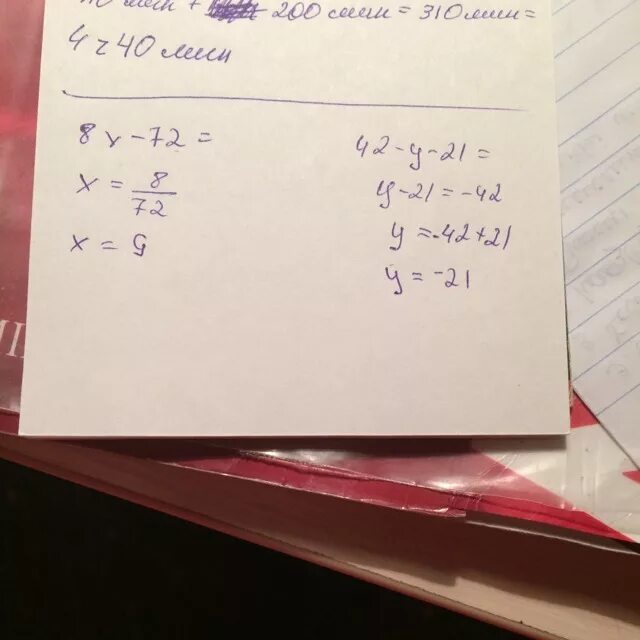 200 мин = 310 мин =
4 ч 40 мин
8x - 72 =
x = 8/72
x = 9
42 - y - 21 =
y - 21 = -42
y = -42 + 21
y = -21